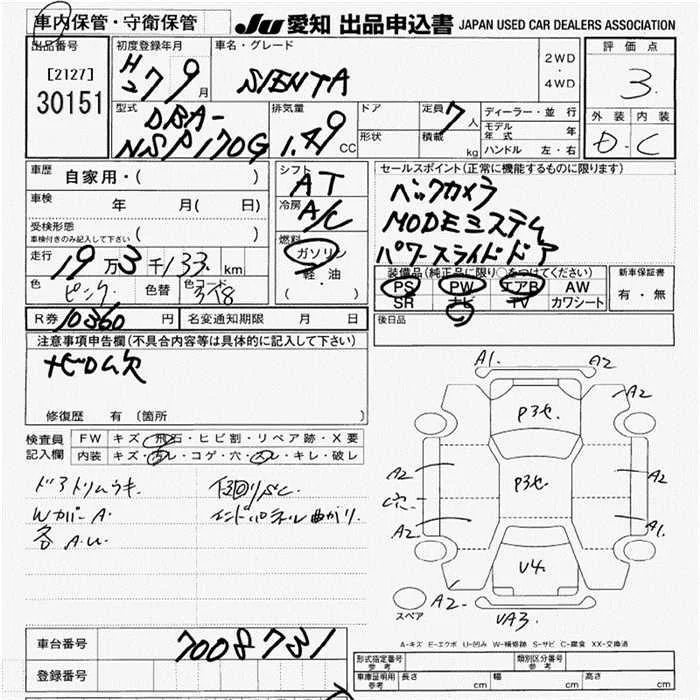 車内保管・守衛保管
JU 愛知 出品申込書 JAPAN USED CAR DEALERS ASSOCIATION
出品番号
[2127]
30151
初度登録年月
H27 9月
車名・グレード
SIENTA
2WD
・
4WD
評価点
3.
外装 内装
D. C
型式
DBA-
NSP170G
排気量
1.49 CC
ドア
形状
定員 7人
積載 kg
ディーラー・並行
モデル年式 年
ハンドル 左・右
車歴 自家用・( )
車検 年 月(日)
受検形態
車検付きのみ記入して下さい ( )
走行 19万3千133 km
色 ピンク 色替 色コード 3T8
シフト
AT
冷房
A/C
燃料
ガソリン
軽・油
( )
セールスポイント(正常に機能するものに限ります)
バックカメラ
パワースライドドア
装備品(純正品に限り○をつけてください)
PS PW エアB AW
SR ナビ TV カワシート
新車保証書
有・無
R券 10360円 名変通知期限 月 日
後日品
注意事項申告欄(不具合内容等は具体的に記入して下さい)
ナビロム欠
修復歴 有 〔箇所
検査員 FW キズ・飛石・ヒビ割・リペア跡・X要
記入欄 内装 キズ・汚レ・コゲ・穴・スレ・キレ・破レ
ドアトリムウキ.
Wカバー A.
各 A.U.
下回りSC.
エンドパネル曲がり.
A1. A2
A2
P3セ.
A2 P3セ. A2
A2. A1.
U4.
スペア A2- UA3.
A-キズ E-エクボ U-凹み W-補修跡 S-サビ C-腐食 XX-交換済
車台番号 7008731
登録番号
形式指定番号 参考 類別区分番号 参考
車庫証明用 参考 長さ cm 幅 cm 高さ cm